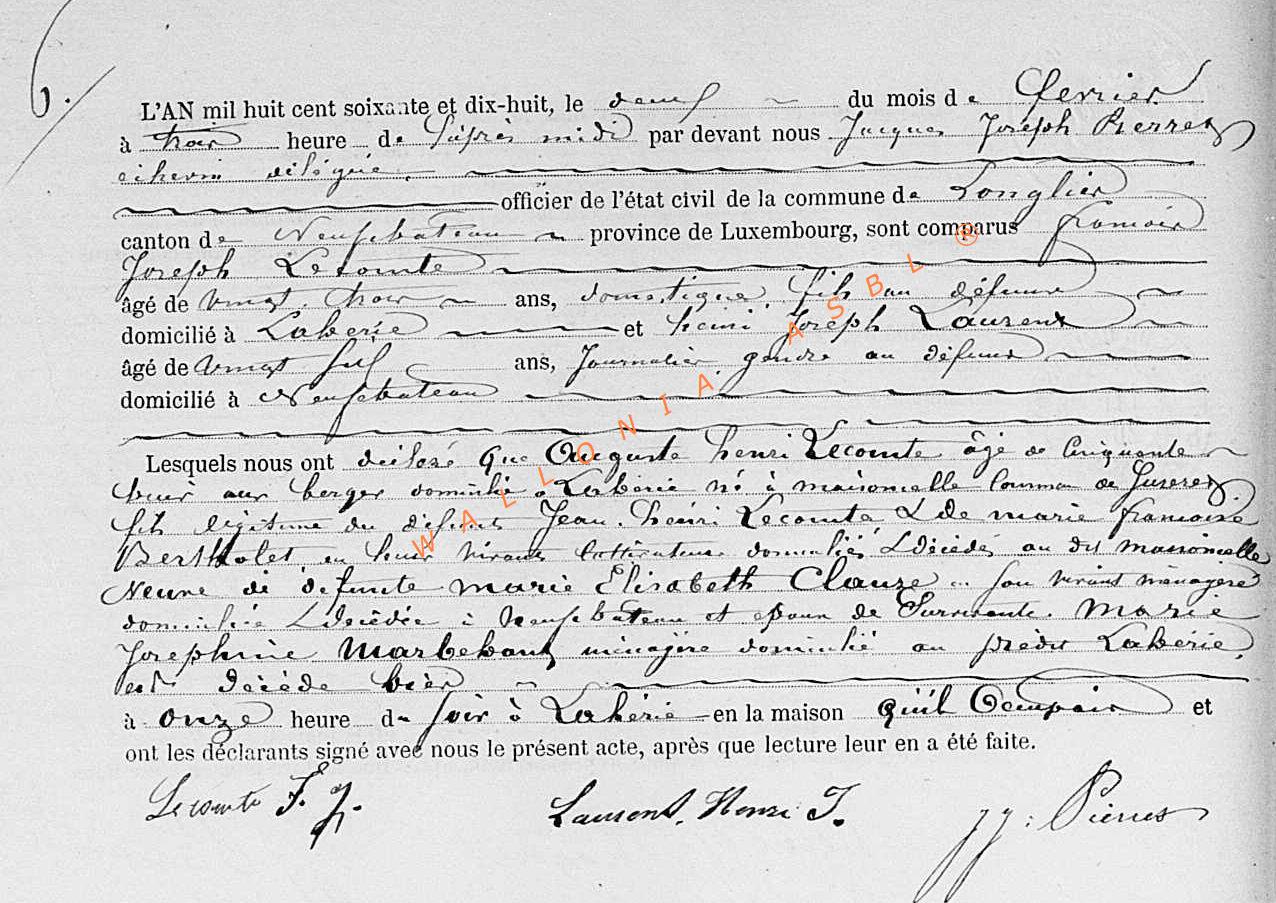 6.
L'AN mil huit cent soixante et dix-huit, le deux du mois de fevrier
à trois heure de l'après midi par devant nous Jacques Joseph Pierret
échevin délégué
officier de l'état civil de la commune de Longlier
canton de Neufchateau province de Luxembourg, sont comparus françois
Joseph Lecomte
âgé de vingt trois ans, domestique, fils au défunt
domicilié à Laherie et henri Joseph Laurent
âgé de vingt sept ans, Journalier, gendre au défunt
domicilié à Neufchateau
Lesquels nous ont déclaré que Auguste henri Lecomte âgé de cinquante
huit ans berger domicilié à Laherie né à maisoncelle Commune de Juseret,
fils légitime du défunt Jean henri Lecomte & de marie françoise
Bertholet en leur vivant cultivateurs domiciliés & décédés au dit maisoncelle
Neuve de défunte marie Elisabeth Clause en son vivant ménagère
domiciliée & décédée à Neufchateau et époux de Survivante Marie
Josephine Marbehant, ménagère domicilié au prédit Laherie,
est décédé hier
à onze heure du soir à Laherie en la maison qu'il Occupait et
ont les déclarants signé avec nous le présent acte, après que lecture leur en a été faite.
Lecomte F. J. Laurent, Henri J. JJ: Pierret
WALLONIA ASBL ®